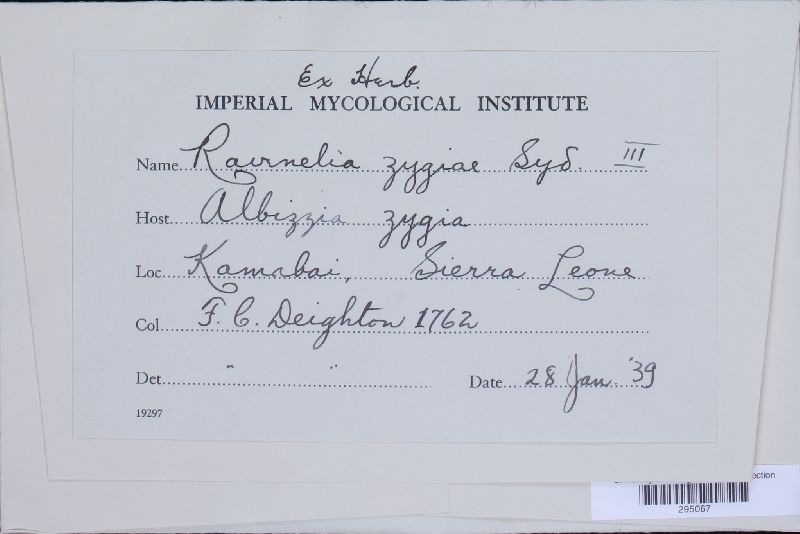 Ex Herb.
IMPERIAL MYCOLOGICAL INSTITUTE
Name Ravenelia zygiae Syd. III
Host Albizzia zygia
Loc Kamabai, Sierra Leone
Col F. C. Deighton 1762
Det " " Date 28 Jan. '39
19297
295067